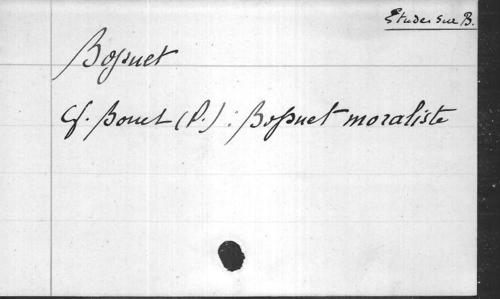 Etudes sur B.
Bossuet
Cf. Bonet (P.) : Bossuet moraliste